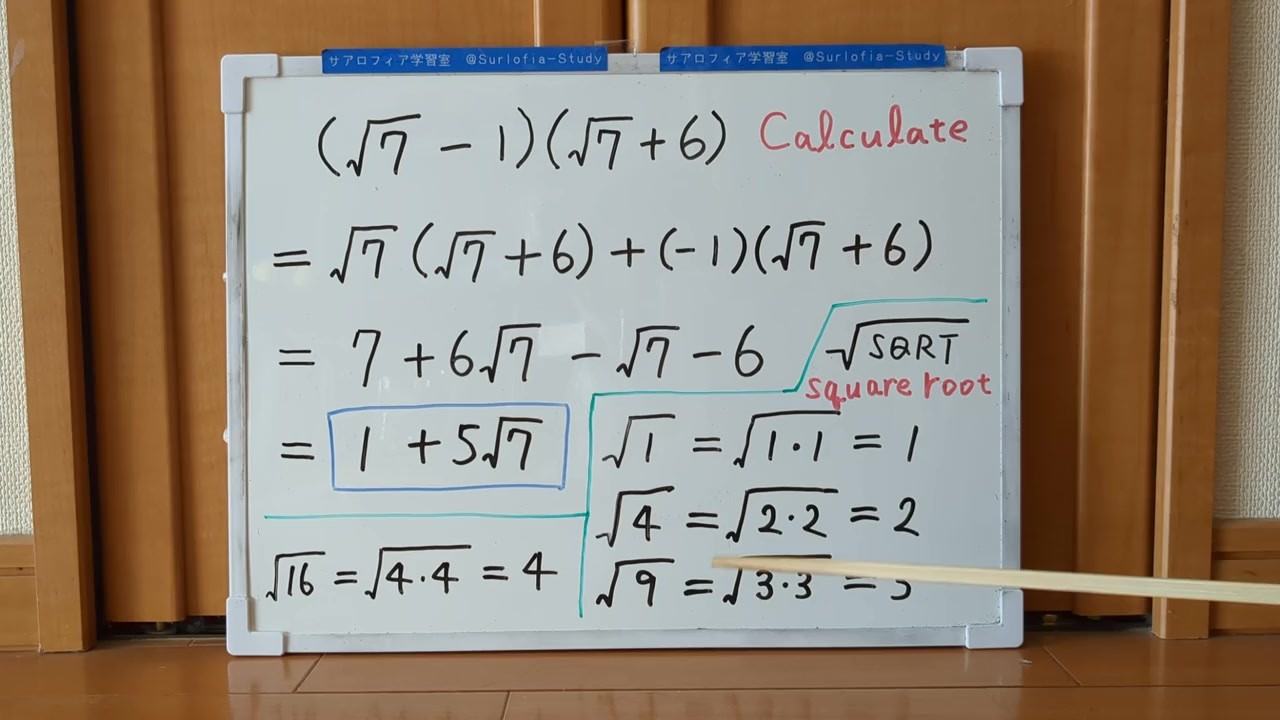 サアロフィア学習室 @Surlofia-Study サアロフィア学習室 @Surlofia-Study
(√7 - 1)(√7 + 6) Calculate
= √7 (√7 + 6) + (-1)(√7 + 6)
= 7 + 6√7 - √7 - 6
= 1 + 5√7
√16 = √4·4 = 4
√SQRT
square root
√1 = √1·1 = 1
√4 = √2·2 = 2
√9 = √3·3 =